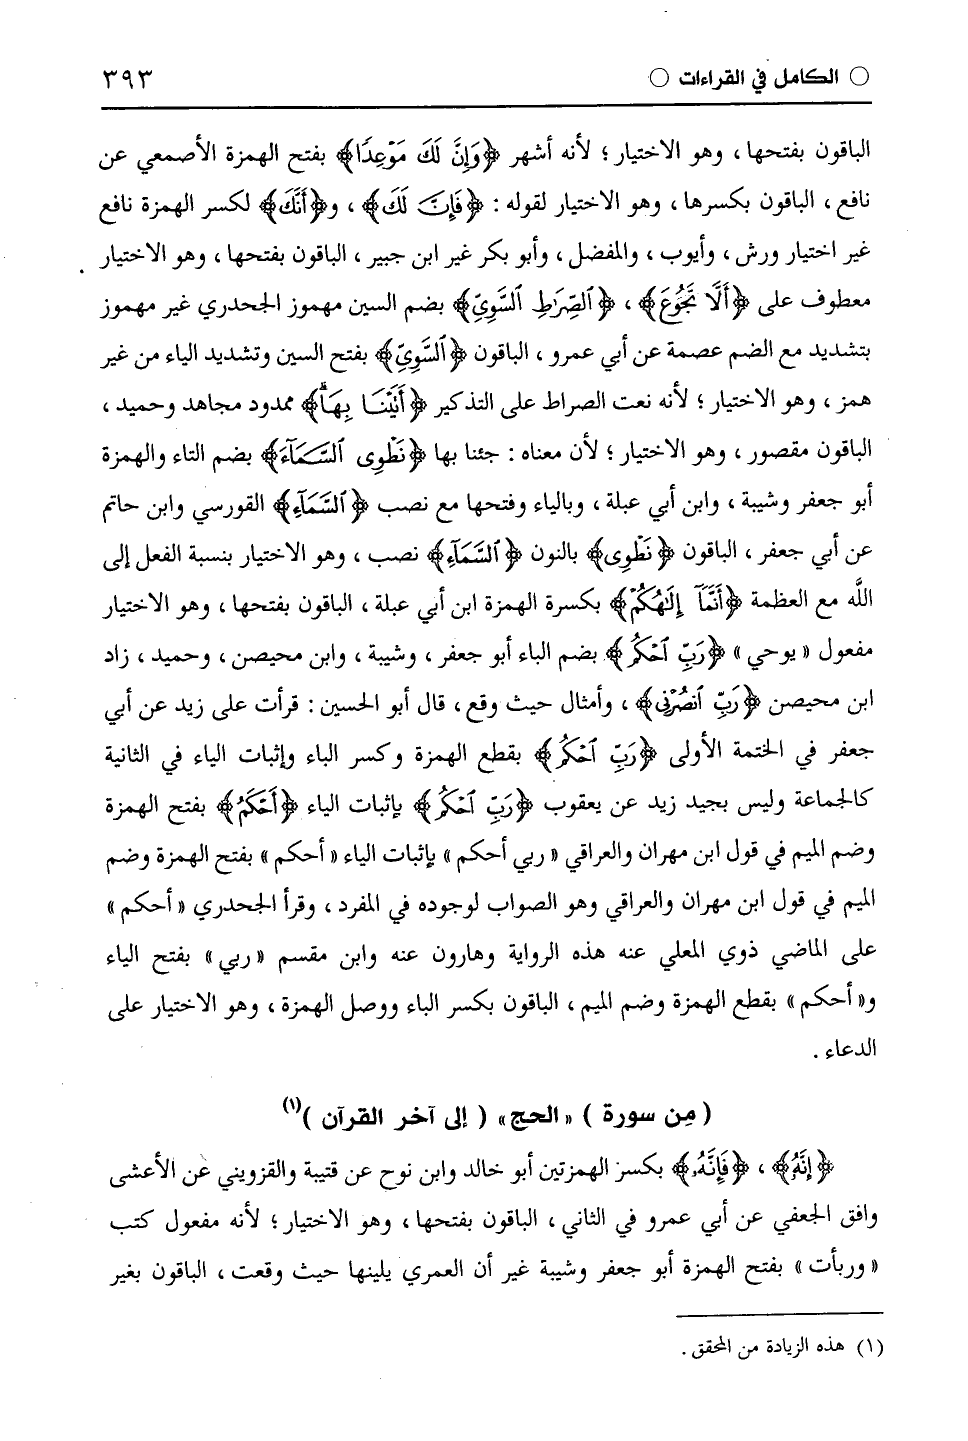 ○ الكامل في القراءات ○ ٣٩٣
الباقون بفتحها ، وهو الاختيار ؛ لأنه أشهر ﴿وَإِنَّ لَكَ مَوْعِدًا﴾ بفتح الهمزة الأصمعي عن
نافع ، الباقون بكسرها ، وهو الاختيار لقوله : ﴿فَإِنَّ لَكَ﴾ ، و﴿أَنَّكَ﴾ لكسر الهمزة نافع
غير اختيار ورش ، وأيوب ، والمفضل ، وأبو بكر غير ابن جبير ، الباقون بفتحها ، وهو الاختيار
معطوف على ﴿أَلَّا تَجُوعَ﴾ ، ﴿ٱلصِّرَٰطِ ٱلسَّوِيِّ﴾ بضم السين مهموز الجحدري غير مهموز
بتشديد مع الضم عصمة عن أبي عمرو ، الباقون ﴿ٱلسَّوِيِّ﴾ بفتح السين وتشديد الياء من غير
همز ، وهو الاختيار ؛ لأنه نعت الصراط على التذكير ﴿أَتَيْنَا بِهَا﴾ ممدود مجاهد وحميد ،
الباقون مقصور ، وهو الاختيار ؛ لأن معناه : جئنا بها ﴿نَطْوِى ٱلسَّمَآءَ﴾ بضم التاء والهمزة
أبو جعفر وشيبة ، وابن أبي عبلة ، وبالياء وفتحها مع نصب ﴿ٱلسَّمَآءِ﴾ القورسي وابن حاتم
عن أبي جعفر ، الباقون ﴿نَطْوِى﴾ بالنون ﴿ٱلسَّمَآءِ﴾ نصب ، وهو الاختيار بنسبة الفعل إلى
اللَّه مع العظمة ﴿أَنَّمَآ إِلَٰهُكُمْ﴾ بكسرة الهمزة ابن أبي عبلة ، الباقون بفتحها ، وهو الاختيار
مفعول « يوحي » ﴿رَبِّ ٱحْكُم﴾ بضم الباء أبو جعفر ، وشيبة ، وابن محيصن ، وحميد ، زاد
ابن محيصن ﴿رَبِّ ٱنصُرْنِى﴾ ، وأمثال حيث وقع ، قال أبو الحسين : قرأت على زيد عن أبي
جعفر في الختمة الأولى ﴿رَبِّ ٱحْكُم﴾ بقطع الهمزة وكسر الباء وإثبات الياء في الثانية
كالجماعة وليس بجيد زيد عن يعقوب ﴿رَبِّ ٱحْكُم﴾ بإثبات الياء ﴿أَحْكَمُ﴾ بفتح الهمزة
وضم الميم في قول ابن مهران والعراقي « ربي أحكم » بإثبات الياء « أحكم » بفتح الهمزة وضم
الميم في قول ابن مهران والعراقي وهو الصواب لوجوده في المفرد ، وقرأ الجحدري « أحكم »
على الماضي ذوي المعلي عنه هذه الرواية وهارون عنه وابن مقسم « ربي » بفتح الياء
و« أحكم » بقطع الهمزة وضم الميم ، الباقون بكسر الباء ووصل الهمزة ، وهو الاختيار على
الدعاء .
( مِن سورة ) « الحج » ( إلى آخر القرآن )(١)
﴿إِنَّهُۥ﴾ ، ﴿فَإِنَّهُۥ﴾ بكسر الهمزتين أبو خالد وابن نوح عن قتيبة والقزويني عن الأعشى
وافق الجعفي عن أبي عمرو في الثاني ، الباقون بفتحها ، وهو الاختيار ؛ لأنه مفعول كتب
« وربأت » بفتح الهمزة أبو جعفر وشيبة غير أن العمري يلينها حيث وقعت ، الباقون بغير
(١) هذه الزيادة من المحقق .